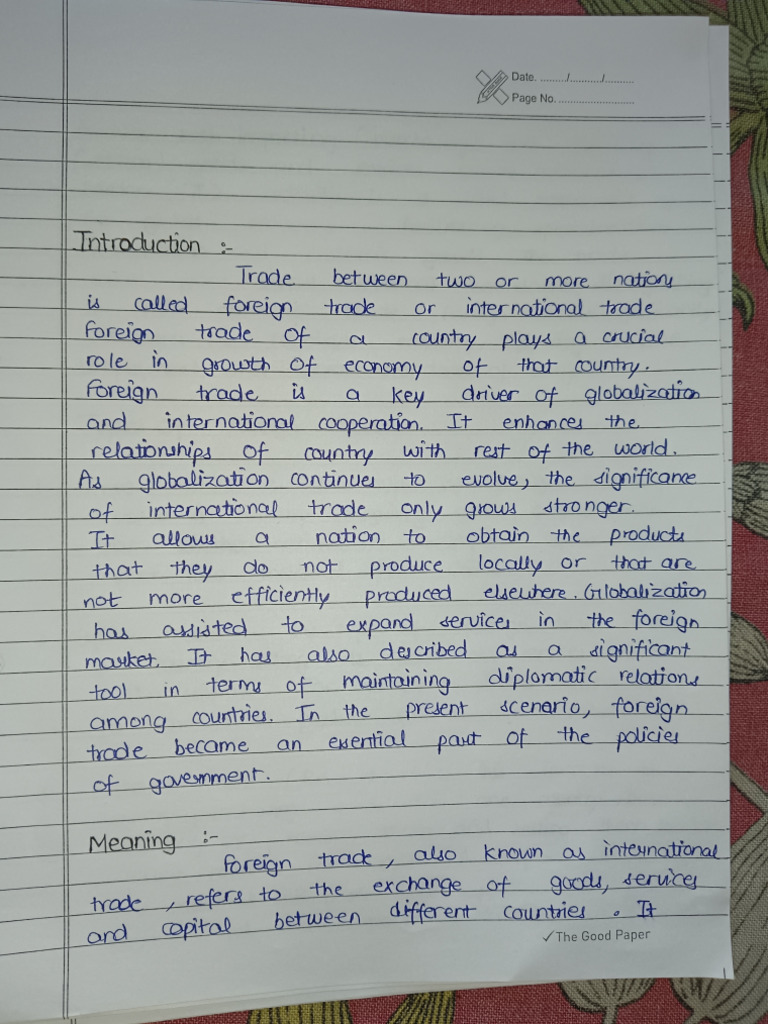 Date. ........./........../.........
Page No. ..........................
Introduction :-
Trade between two or more nations
is called foreign trade or international trade
Foreign trade of a country plays a crucial
role in growth of economy of that country.
Foreign trade is a key driver of globalization
and international cooperation. It enhances the
relationships of country with rest of the world.
As globalization continues to evolve, the significance
of international trade only grows stronger.
It allows a nation to obtain the products
that they do not produce locally or that are
not more efficiently produced elsewhere. Globalization
has assisted to expand services in the foreign
market. It has also described as a significant
tool in terms of maintaining diplomatic relations
among countries. In the present scenario, foreign
trade became an essential part of the policies
of government.
Meaning :-
Foreign trade, also known as international
trade, refers to the exchange of goods, services
and capital between different countries. It
✓The Good Paper